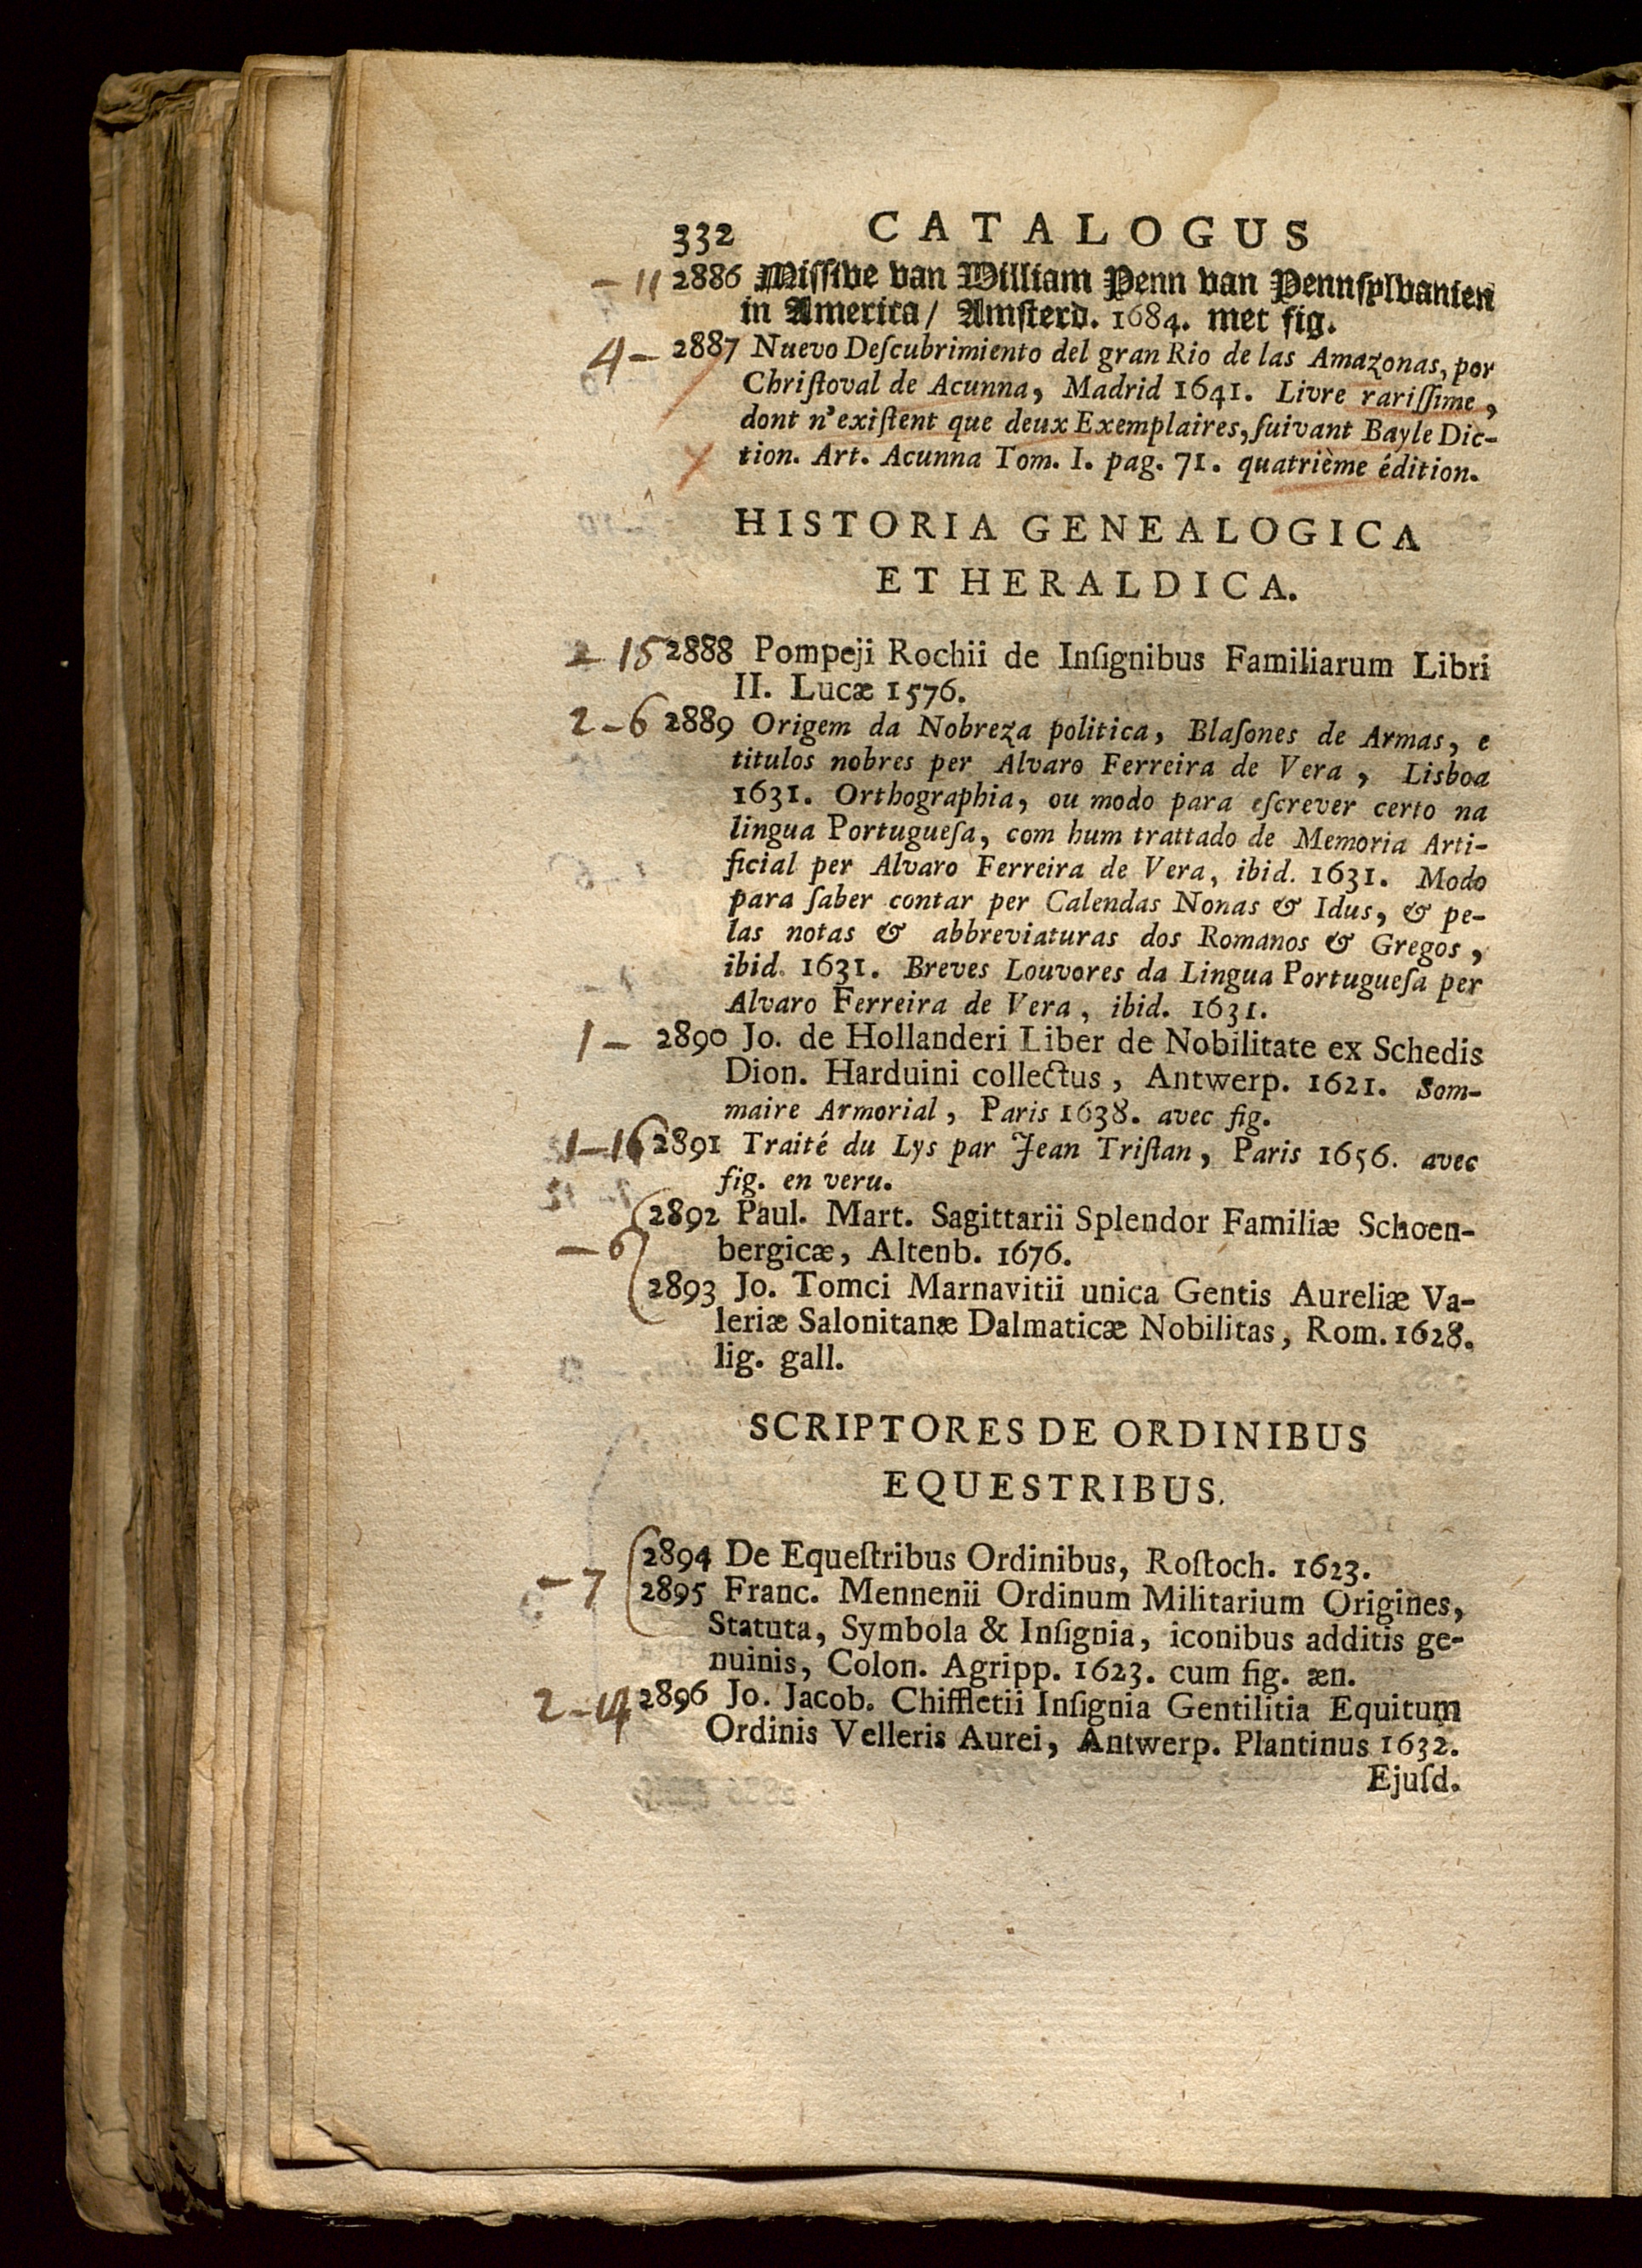 332 CATALOGUS
- 11 2886 Missive van William Penn van Pennsylvanien
in America/ Amsterd. 1684. met fig.
4 - 2887 Nuevo Deſcubrimiento del gran Rio de las Amazonas, por
Chriſtoval de Acunna, Madrid 1641. Livre rariſſime,
dont n'exiſtent que deux Exemplaires, ſuivant Bayle Dic-
tion. Art. Acunna Tom. I. pag. 71. quatrième édition.
HISTORIA GENEALOGICA
ET HERALDICA.
2 - 15 2888 Pompeji Rochii de Inſignibus Familiarum Libri
II. Lucæ 1576.
2 - 6 2889 Origem da Nobreza politica, Blaſones de Armas, e
titulos nobres per Alvaro Ferreira de Vera, Lisboa
1631. Orthographia, ou modo para eſcrever certo na
lingua Portugueſa, com hum trattado de Memoria Arti-
ficial per Alvaro Ferreira de Vera, ibid. 1631. Modo
para ſaber contar per Calendas Nonas & Idus, & pe-
las notas & abbreviaturas dos Romanos & Gregos,
ibid. 1631. Breves Louvores da Lingua Portugueſa per
Alvaro Ferreira de Vera, ibid. 1631.
1 - 2890 Jo. de Hollanderi Liber de Nobilitate ex Schedis
Dion. Harduini collectus, Antwerp. 1621. Som-
maire Armorial, Paris 1638. avec fig.
1 - 16 2891 Traité du Lys par Jean Triſtan, Paris 1656. avec
fig. en veru.
2892 Paul. Mart. Sagittarii Splendor Familiæ Schoen-
- 6 bergicæ, Altenb. 1676.
2893 Jo. Tomci Marnavitii unica Gentis Aureliæ Va-
leriæ Salonitanæ Dalmaticæ Nobilitas, Rom. 1628.
lig. gall.
SCRIPTORES DE ORDINIBUS
EQUESTRIBUS.
2894 De Equeſtribus Ordinibus, Roſtoch. 1623.
- 7 2895 Franc. Mennenii Ordinum Militarium Origines,
Statuta, Symbola & Inſignia, iconibus additis ge-
nuinis, Colon. Agripp. 1623. cum fig. æn.
2 - 14 2896 Jo. Jacob. Chiffletii Inſignia Gentilitia Equitum
Ordinis Velleris Aurei, Antwerp. Plantinus 1632.
Ejuſd.